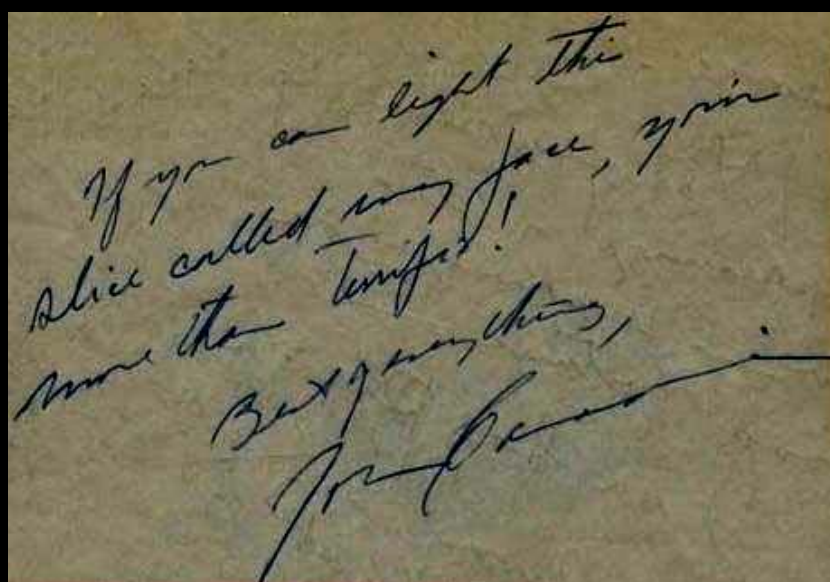 If you can light this
slice called my face, you're
more than Terrific!
Best of everything,
John